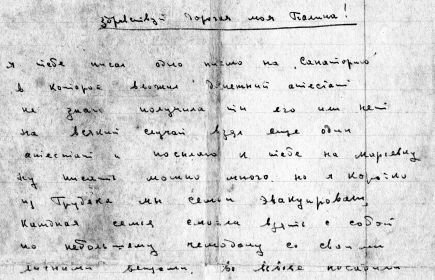 здравствуй дорогая моя Галина!
я тебе писал одно письмо на Санаторию
в которое вложил денежный атестат
не знаю получила ты его или нет
на всякий случай взял еще один
атестат и посылаю к тебе на Марьевку
ну писать можно много но я коротко
из Грудека мы семьи эвакуировали,
каждная семья смогла взять с собой
по небольшому чемодану со своими
личными вещами.